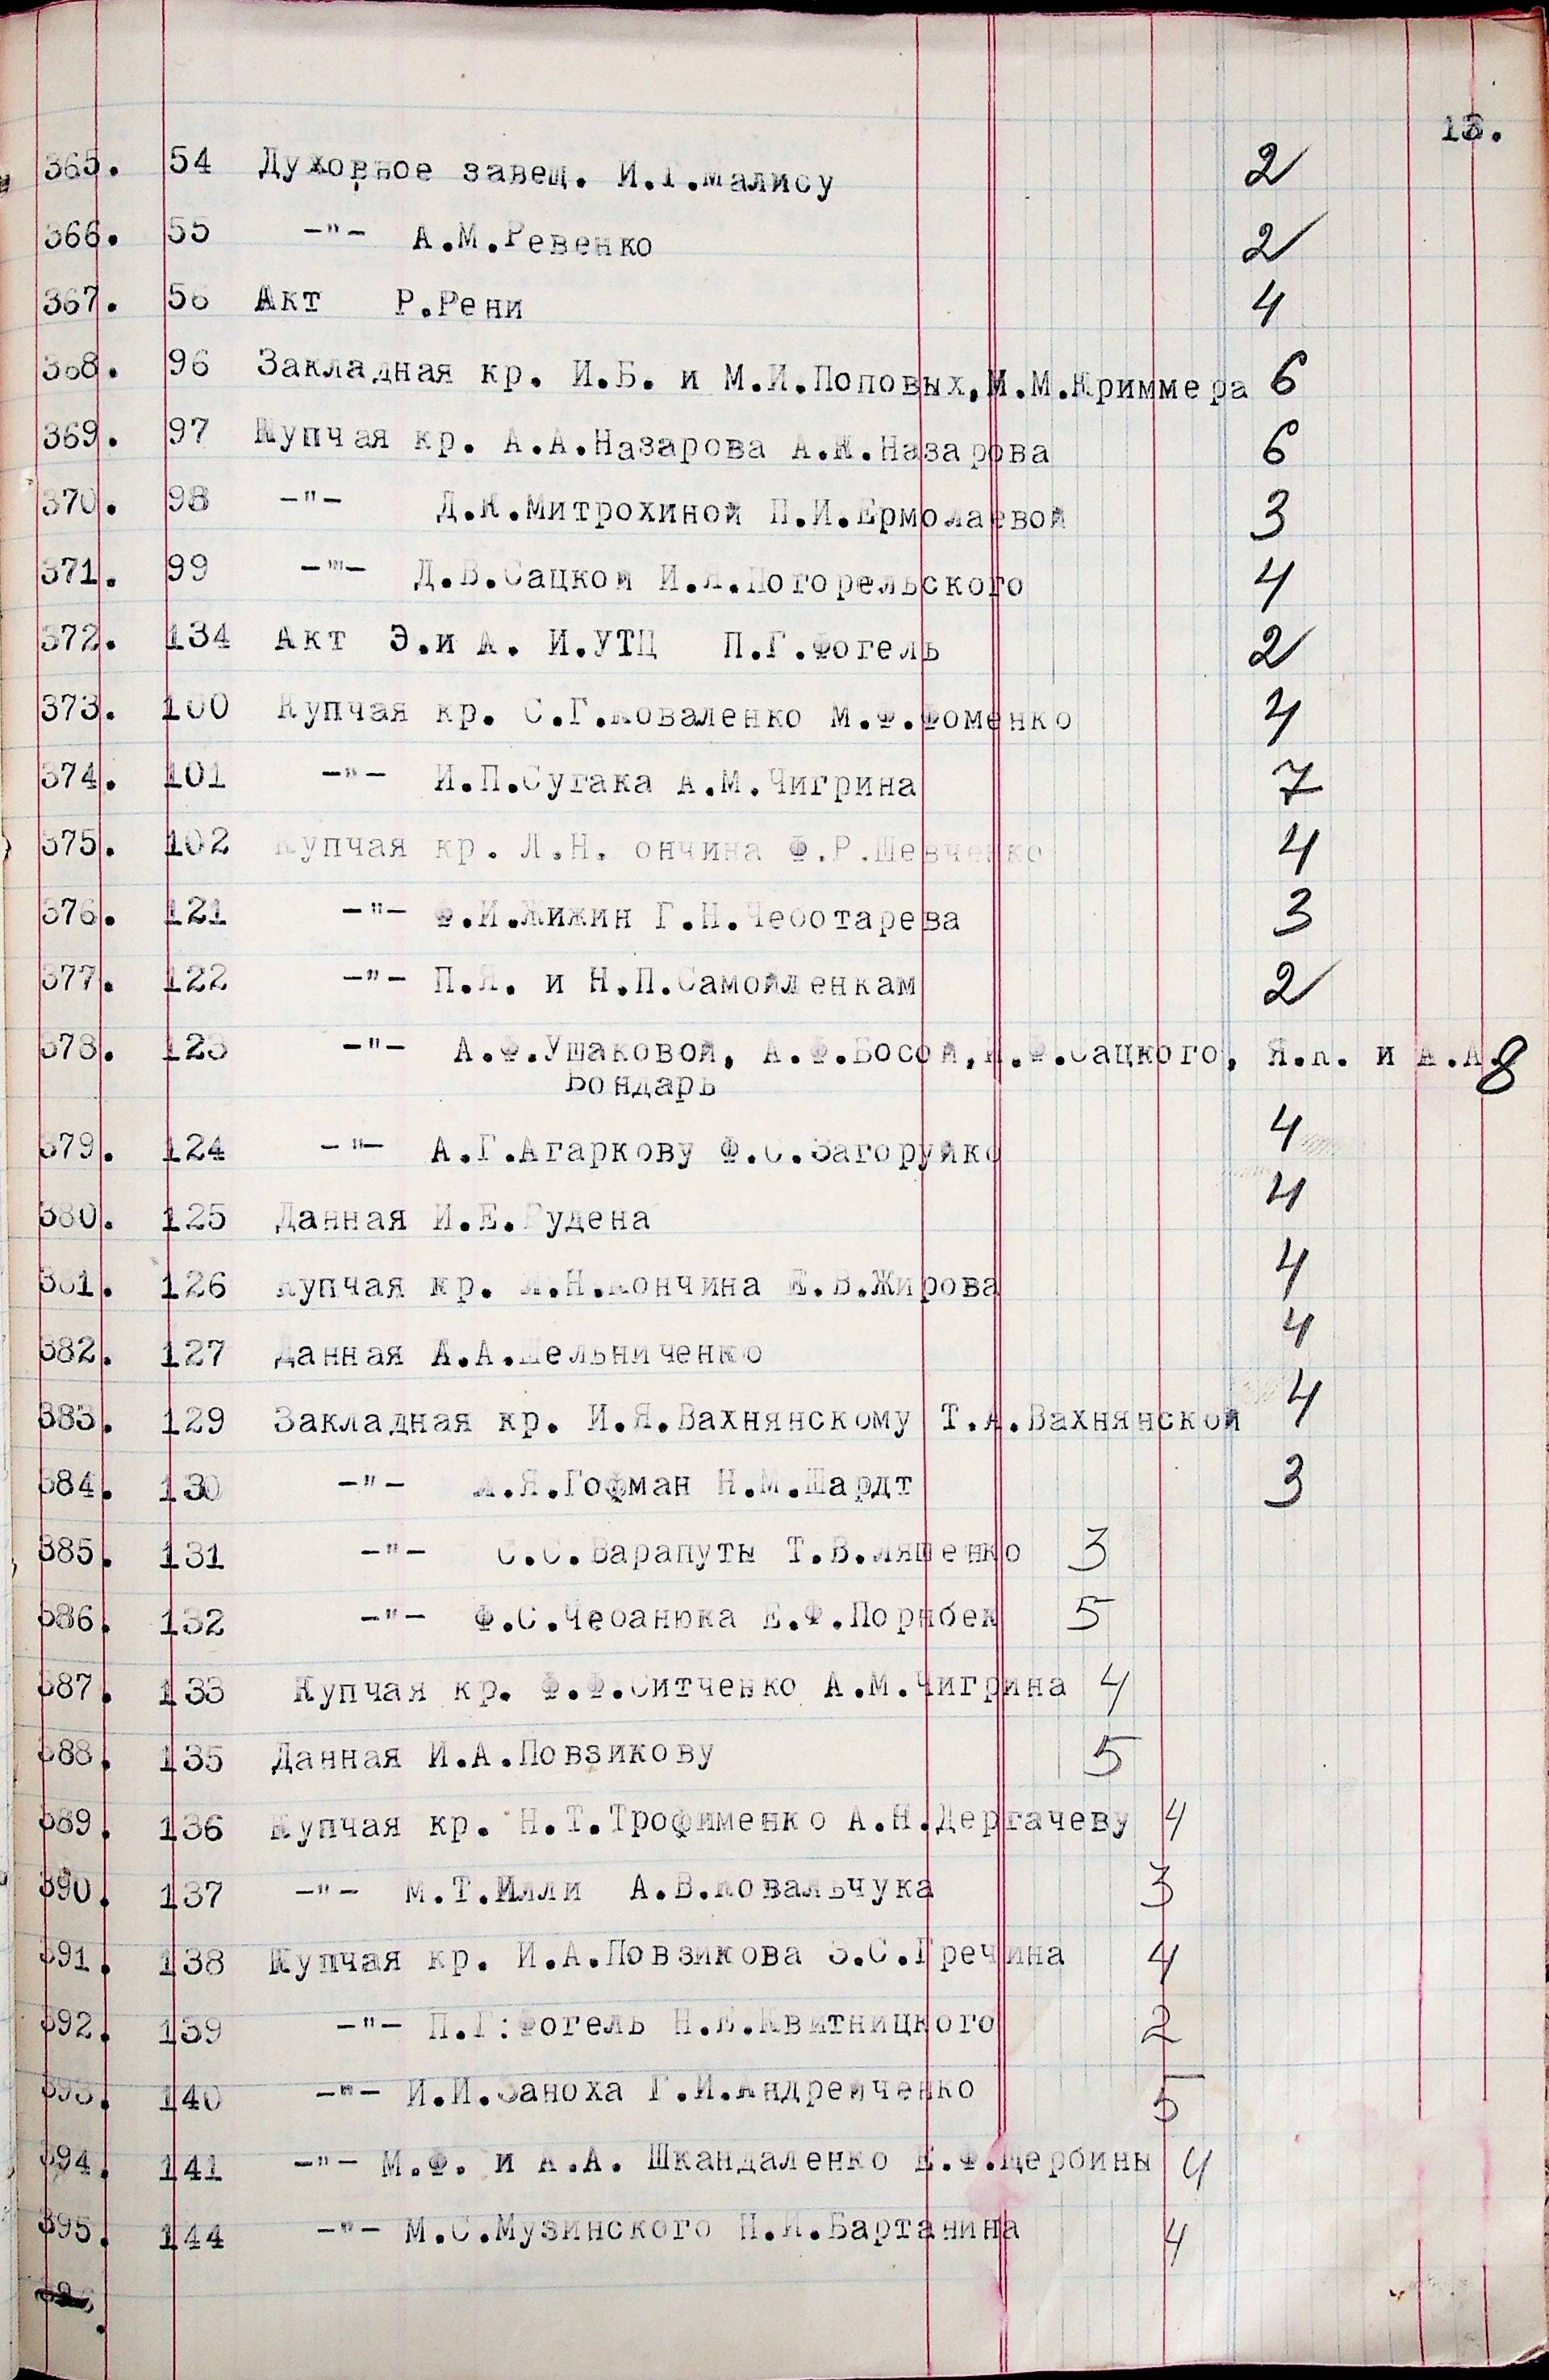 13.
365. 54 Духовное завещ. И.Г.Малису 2
366. 55 -"- А.М.Ревенко 2
367. 56 Акт Р.Рени 4
368. 96 Закладная кр. И.Б. и М.И.Поповых,И.М.Криммера 6
369. 97 Купчая кр. А.А.Назарова А.К.Назарова 6
370. 98 -"- Д.К.Митрохиной П.И.Ермолаевой 3
371. 99 -"- Д.В.Сацкой И.Я.Погорельского 4
372. 134 Акт Э.и А. И.УТЦ П.Г.Фогель 2
373. 100 Купчая кр. С.Г.Коваленко М.Ф.Фоменко 4
374. 101 -"- И.П.Сугака А.М.Чигрина 7
375. 102 Купчая кр. Л.Н. ончина Ф.Р.Шевченко 4
376. 121 -"- Ф.И.Жижин Г.Н.Чеботарева 3
377. 122 -"- П.Я. и Н.П.Самойленкам 2
378. 123 -"- А.Ф.Ушаковой, А.Ф.Босой, Сацкого, Я.К. и А.А. 8
Бондарь
379. 124 -"- А.Г.Агаркову Ф.С.Загоруйко 4
380. 125 Данная И.Е.Рудена 4
381. 126 Купчая кр. Л.Н.Кончина Е.В.Жирова 4
382. 127 Данная А.А.Шельниченко 4
383. 129 Закладная кр. И.Я.Вахнянскому Т.А.Вахнянской 4
384. 130 -"- А.Я.Гофман Н.М.Шардт 3
385. 131 -"- С.С.Варапуты Т.В.Ляшенко 3
386. 132 -"- Ф.С.Чебанюка Е.Ф.Порнбек 5
387. 133 Купчая кр. Ф.Ф.Ситченко А.М.Чигрина 4
388. 135 Данная И.А.Повзикову 5
389. 136 Купчая кр. Н.Т.Трофименко А.Н.Дергачеву 4
390. 137 -"- М.Т.Илли А.В.Ковальчука 3
391. 138 Купчая кр. И.А.Повзикова З.С.Гречина 4
392. 139 -"- П.Г:Фогель Н.Е.Квитницкого 2
393. 140 -"- И.И.Заноха Г.И.Андрейченко 5
394. 141 -"- М.Ф. и А.А. Шкандаленко Е.Ф.Щербины 4
395. 144 -"- М.С.Музинского П.И.Бартанина 4